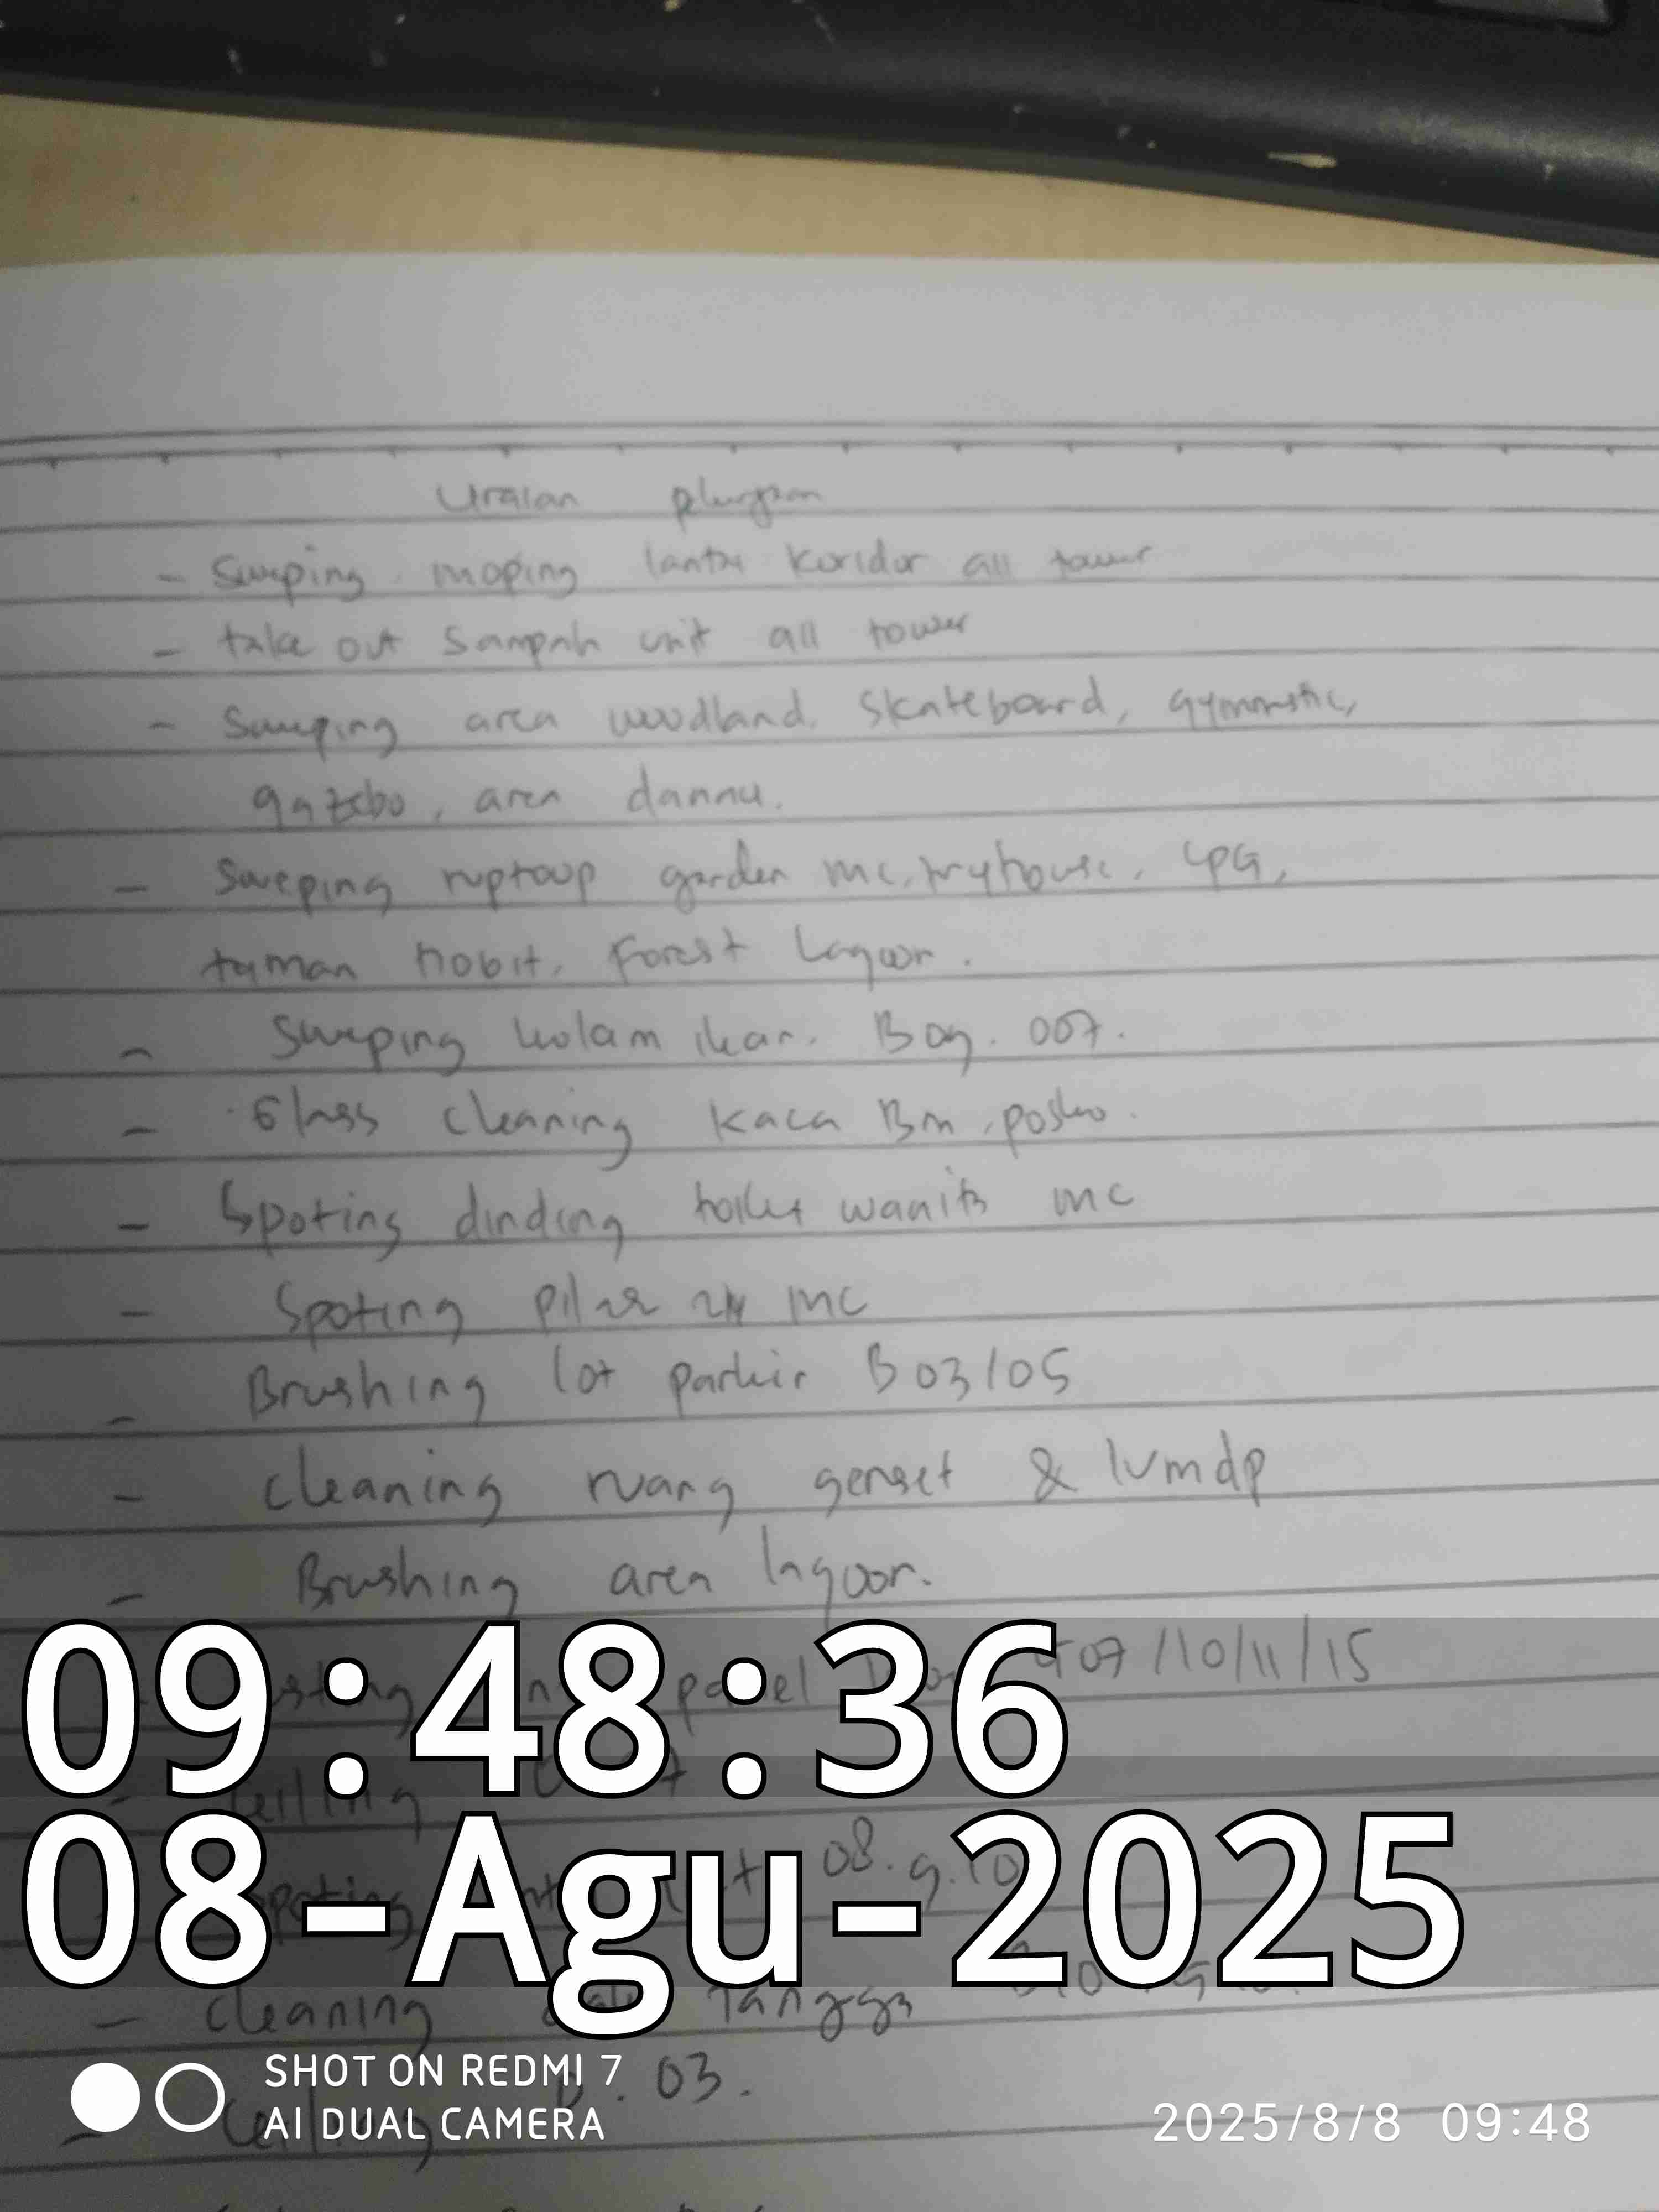 Uraian
- Sweping moping lantai koridor all tower
- take out Sampah unit all tower
- Sweping area woodland. Skateboard, gymnastic,
gazebo, area danau.
- Sweping garden mc,
taman hobit, Forest Lagoon.
- Sweping kolam ikan. 007.
- Glass cleaning kaca Bm, posko.
- Spoting dinding toilet wanita mc
- Spoting pilar mc
- Brushing lot parkir B03/05
- cleaning ruang genset & lvmdp
- Brushing area lagoon.
panel 07/10/11/15
09:48:36
- Ceiling
08-Agu-2025
08.9.10
- cleaning Tangga
SHOT ON REDMI 7
AI DUAL CAMERA
- Ceiling 03.
2025/8/8 09:48